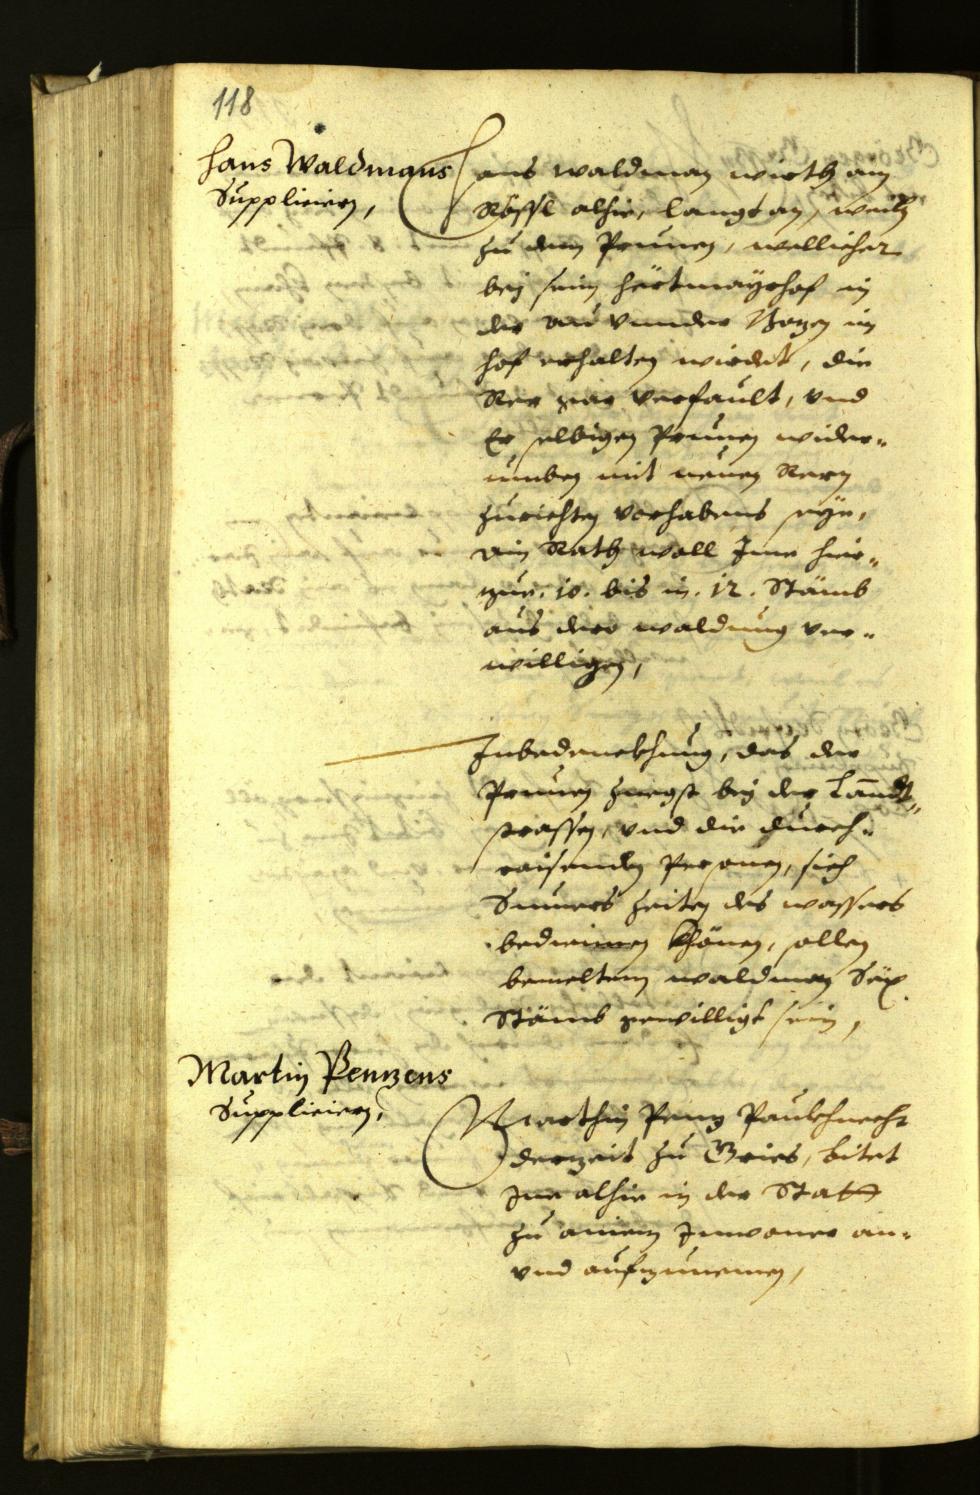 118
Hans Waldmans
Suppliciern,
Hans Waldman wirth am
Rössl alhie, langt an, weilln
zu dem Prunen, wellicher
bey sein Hörtmayrhof in
der Au vnnder Bozen im
hof erhalten wirdet, die
Rer gar verfault, vnd
Er selbigen Prunen wider-
umben mit neuen Rern
zurichten vorhabens seye,
ain Rath woll Ime hie-
zue. 10. bis in. 12. Stämb
aus der waldung ver-
willigen,
In bedenckhung, das der
Prunen zuegst bey der Lanndt-
strassen, vnd die durch-
raisenden Personen, sich
Sumers zeiten des wassers
bedienen khönen, sollen
bemeltem waldman Säx
Stämb gewilligt sein,
Martin Penzens
Suppliciern,
Marthin Penz Paukhnecht
derzeit zu Gries, bitet
Ine alhie in der Statt
zu ainem Inwoner an-
vnd aufzunemen,